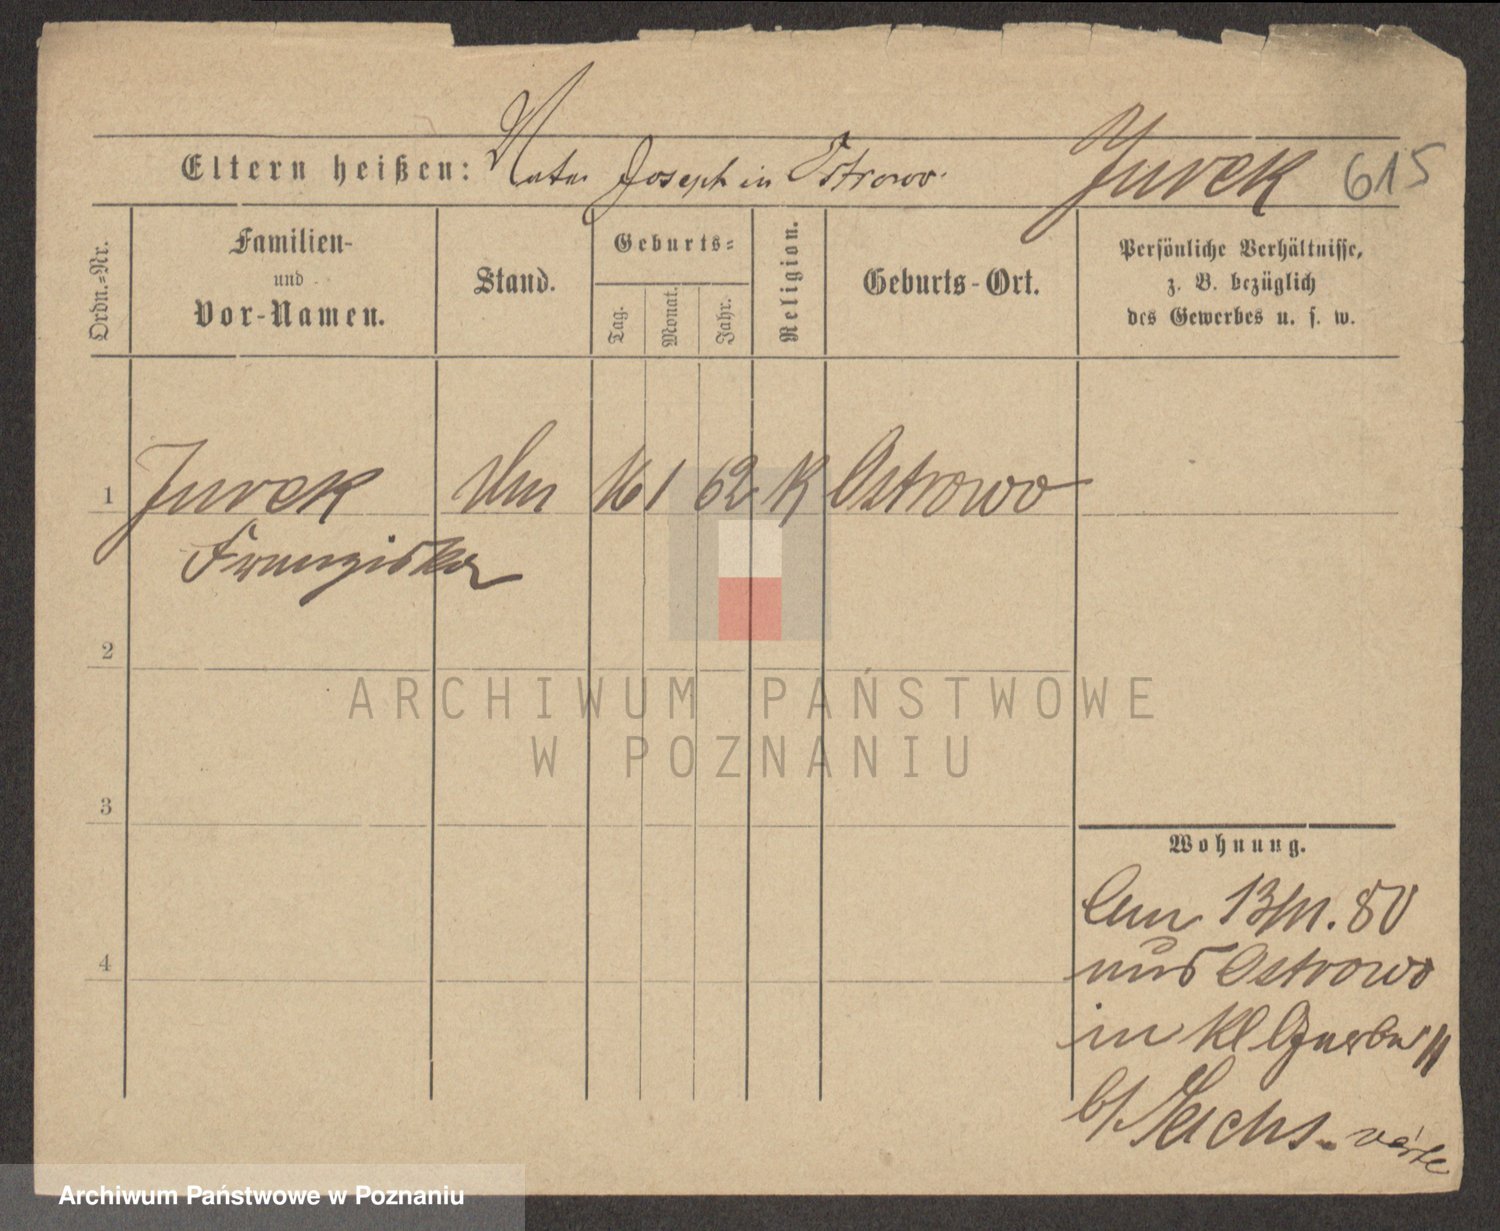 Eltern heißen: Vater Joseph in Ostrowo. Jurek 615
Ordn.=Nr.
Familien-
und
Vor-Namen.
Stand.
Geburts=
Tag.
Monat.
Jahr.
Religion.
Geburts-Ort.
Persönliche Verhältnisse,
z. B. bezüglich
des Gewerbes u. s. w.
1 Jurek 16 1 62 K Ostrowo
Franziska
2
ARCHIWUM PAŃSTWOWE
W POZNANIU
3
Wohnung.
Am 80
4
aus Ostrowo
in Kl Gerber
b/ Sachs
Archiwum Państwowe w Poznaniu